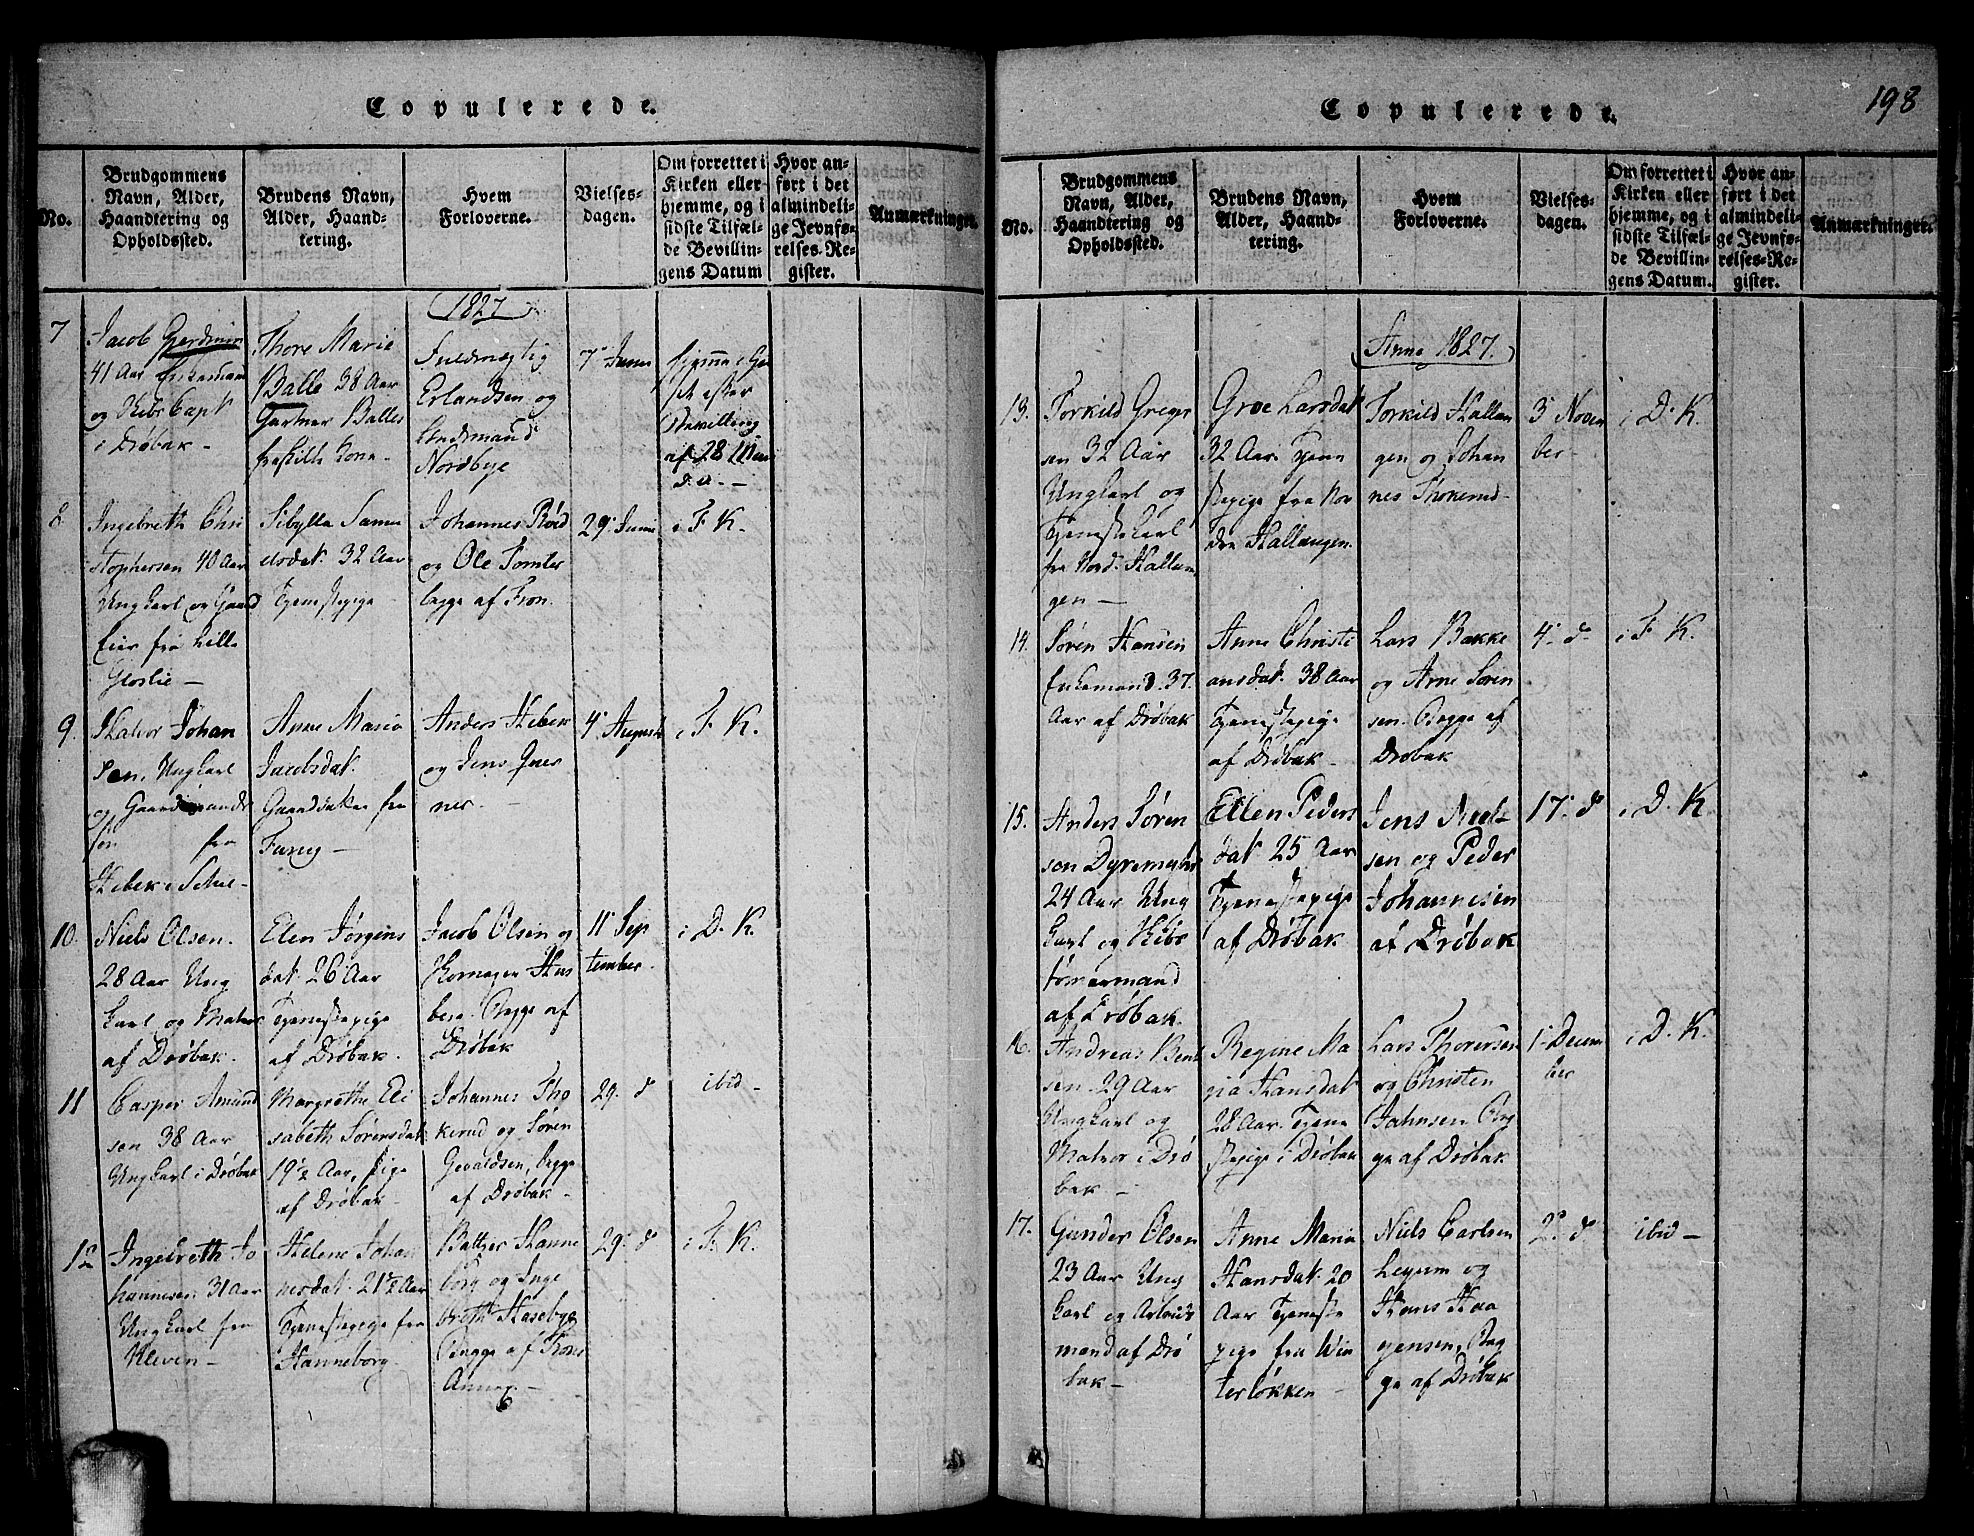 Copulerede.
No.
Brudgommens
Navn, Alder,
Haandtering og
Opholdssted.
Brudens Navn,
Alder, Haand-
tering.
Hvem
Forloverne.
Vielses-
dagen.
Om forrettet i
Kirken eller
hjemme, og i
sidste Tilfæl-
de Bevillin-
gens Datum
Hvor an-
ført i det
almindeli-
ge Jevnfø-
relses-Re-
gister.
Anmærkninger.
1827
7
Jacob
41 Aar Enkemand
og Skibs Capt
i Drøbak -
Thore Marie
Balle 38 Aar
Gartner Balles
fraskilte Kone -
Fuldmægtig
Erlandsen og
Nordbye
7 Juni
hjemme i
efter
Bevilling
af 28
d. A. -
8
Ingebreth Chri
stophersen 40 Aar
Ungkarl og Gaard
Eier fra Lille
Gloslie -
Sibylla Samu
elsdat. 32 Aar
Tjenestepige -
Johannes Røed
og Ole Tomter
begge af Fron.
29. Juni
i F. K.
9.
Halvor Johan
sen, Ungkarl
og Gaardmands
søn fra
Hebek i Schie -
Anne Maria
Jacobsdat.
Gaarddatter fra
-
Anders Hebek
og Jens
ner. -
4. August
i F. K.
10.
Niels Olsen.
28 Aar Ung
karl og Matros
af Drøbak.
Elen Jørgens
dat. 26 Aar
Tjenestepige
af Drøbak.
Jacob Olsen og
Skomager Hus
berg. Begge af
Drøbak
11 Sep
tember.
i D. K.
11
Casper Amund
sen 38 Aar
Ungkarl i Drøbak
Margrethe Eli
sabeth Sørensdat.
19½ Aar, Pige
af Drøbak -
Johannes Tho
kerud og Søren
Gevaldsen, begge
af Drøbak -
29. d
ibid -
12
Ingebreth Jo
hannesen 31 Aar
Ungkarl fra
Kleven -
Helene Johan
nesdat. 21½ Aar
Tjenestepige fra
Hanneborg -
Baltzer Hanne
borg og Inge
breth Hasebye
Begge af Frons
Annex -
29. d
i F. K.
Copulerede.
198
No.
Brudgommens
Navn, Alder,
Haandtering og
Opholdssted.
Brudens Navn,
Alder, Haand-
tering.
Hvem
Forloverne.
Vielses-
dagen.
Om forrettet i
Kirken eller
hjemme, og i
sidste Tilfæl-
de Bevillin-
gens Datum.
Hvor an-
ført i det
almindeli-
ge Jevnfø-
relses-Re-
gister.
Anmærkninger.
Anno 1827.
13.
Torkild Greger
sen 32 Aar
Ungkarl og
Tjenestekarl
fra Nord. Hallan
gen -
Groe Larsdat
32 Aar. Tjene
stepige fra Nor
dre Hallangen.
Torkild Hallan
gen og Johan
nes Thokerud -
3 Novem
ber -
i D. K.
14.
Søren Hansen
Enkemand. 37.
Aar af Drøbak
Anne Christi
ansdat. 38 Aar
Tjenestepige
af Drøbak -
Lars Bakke
og Arne Søren
sen. Begge af
Drøbak
4. d.
i F. K.
15.
Anders Søren
sen Dyremyhr
24 Aar Ung
karl og Skibs
tømermand
af Drøbak.
Ellen Peders
dat. 25 Aar
Tjenestepige
af Drøbak.
Jens Niel-
sen og Peder
Johannesen
af Drøbak
17. d
i D. K.
16.
Andreas Bent
sen 29 Aar
Ungkarl og
Matros i Drø
bak -
Regine Ma
ria Hansdat.
28 Aar. Tjene
stepige i Drøbak
Lars Thoresen
og Christen
Jahnsen Beg
ge af Drøbak
1. Decem
ber
i D. K.
17.
Gunder Olsen
23 Aar Ung
karl og Arbeids
mand af Drø
bak -
Anne Maria
Hansdat. 20
Aar Tjeneste
pige fra Win
terløkken -
Niels Carlsen
Legum og
Hans Haa
gensen, Beg
ge af Drøbak
2. d
ibid -